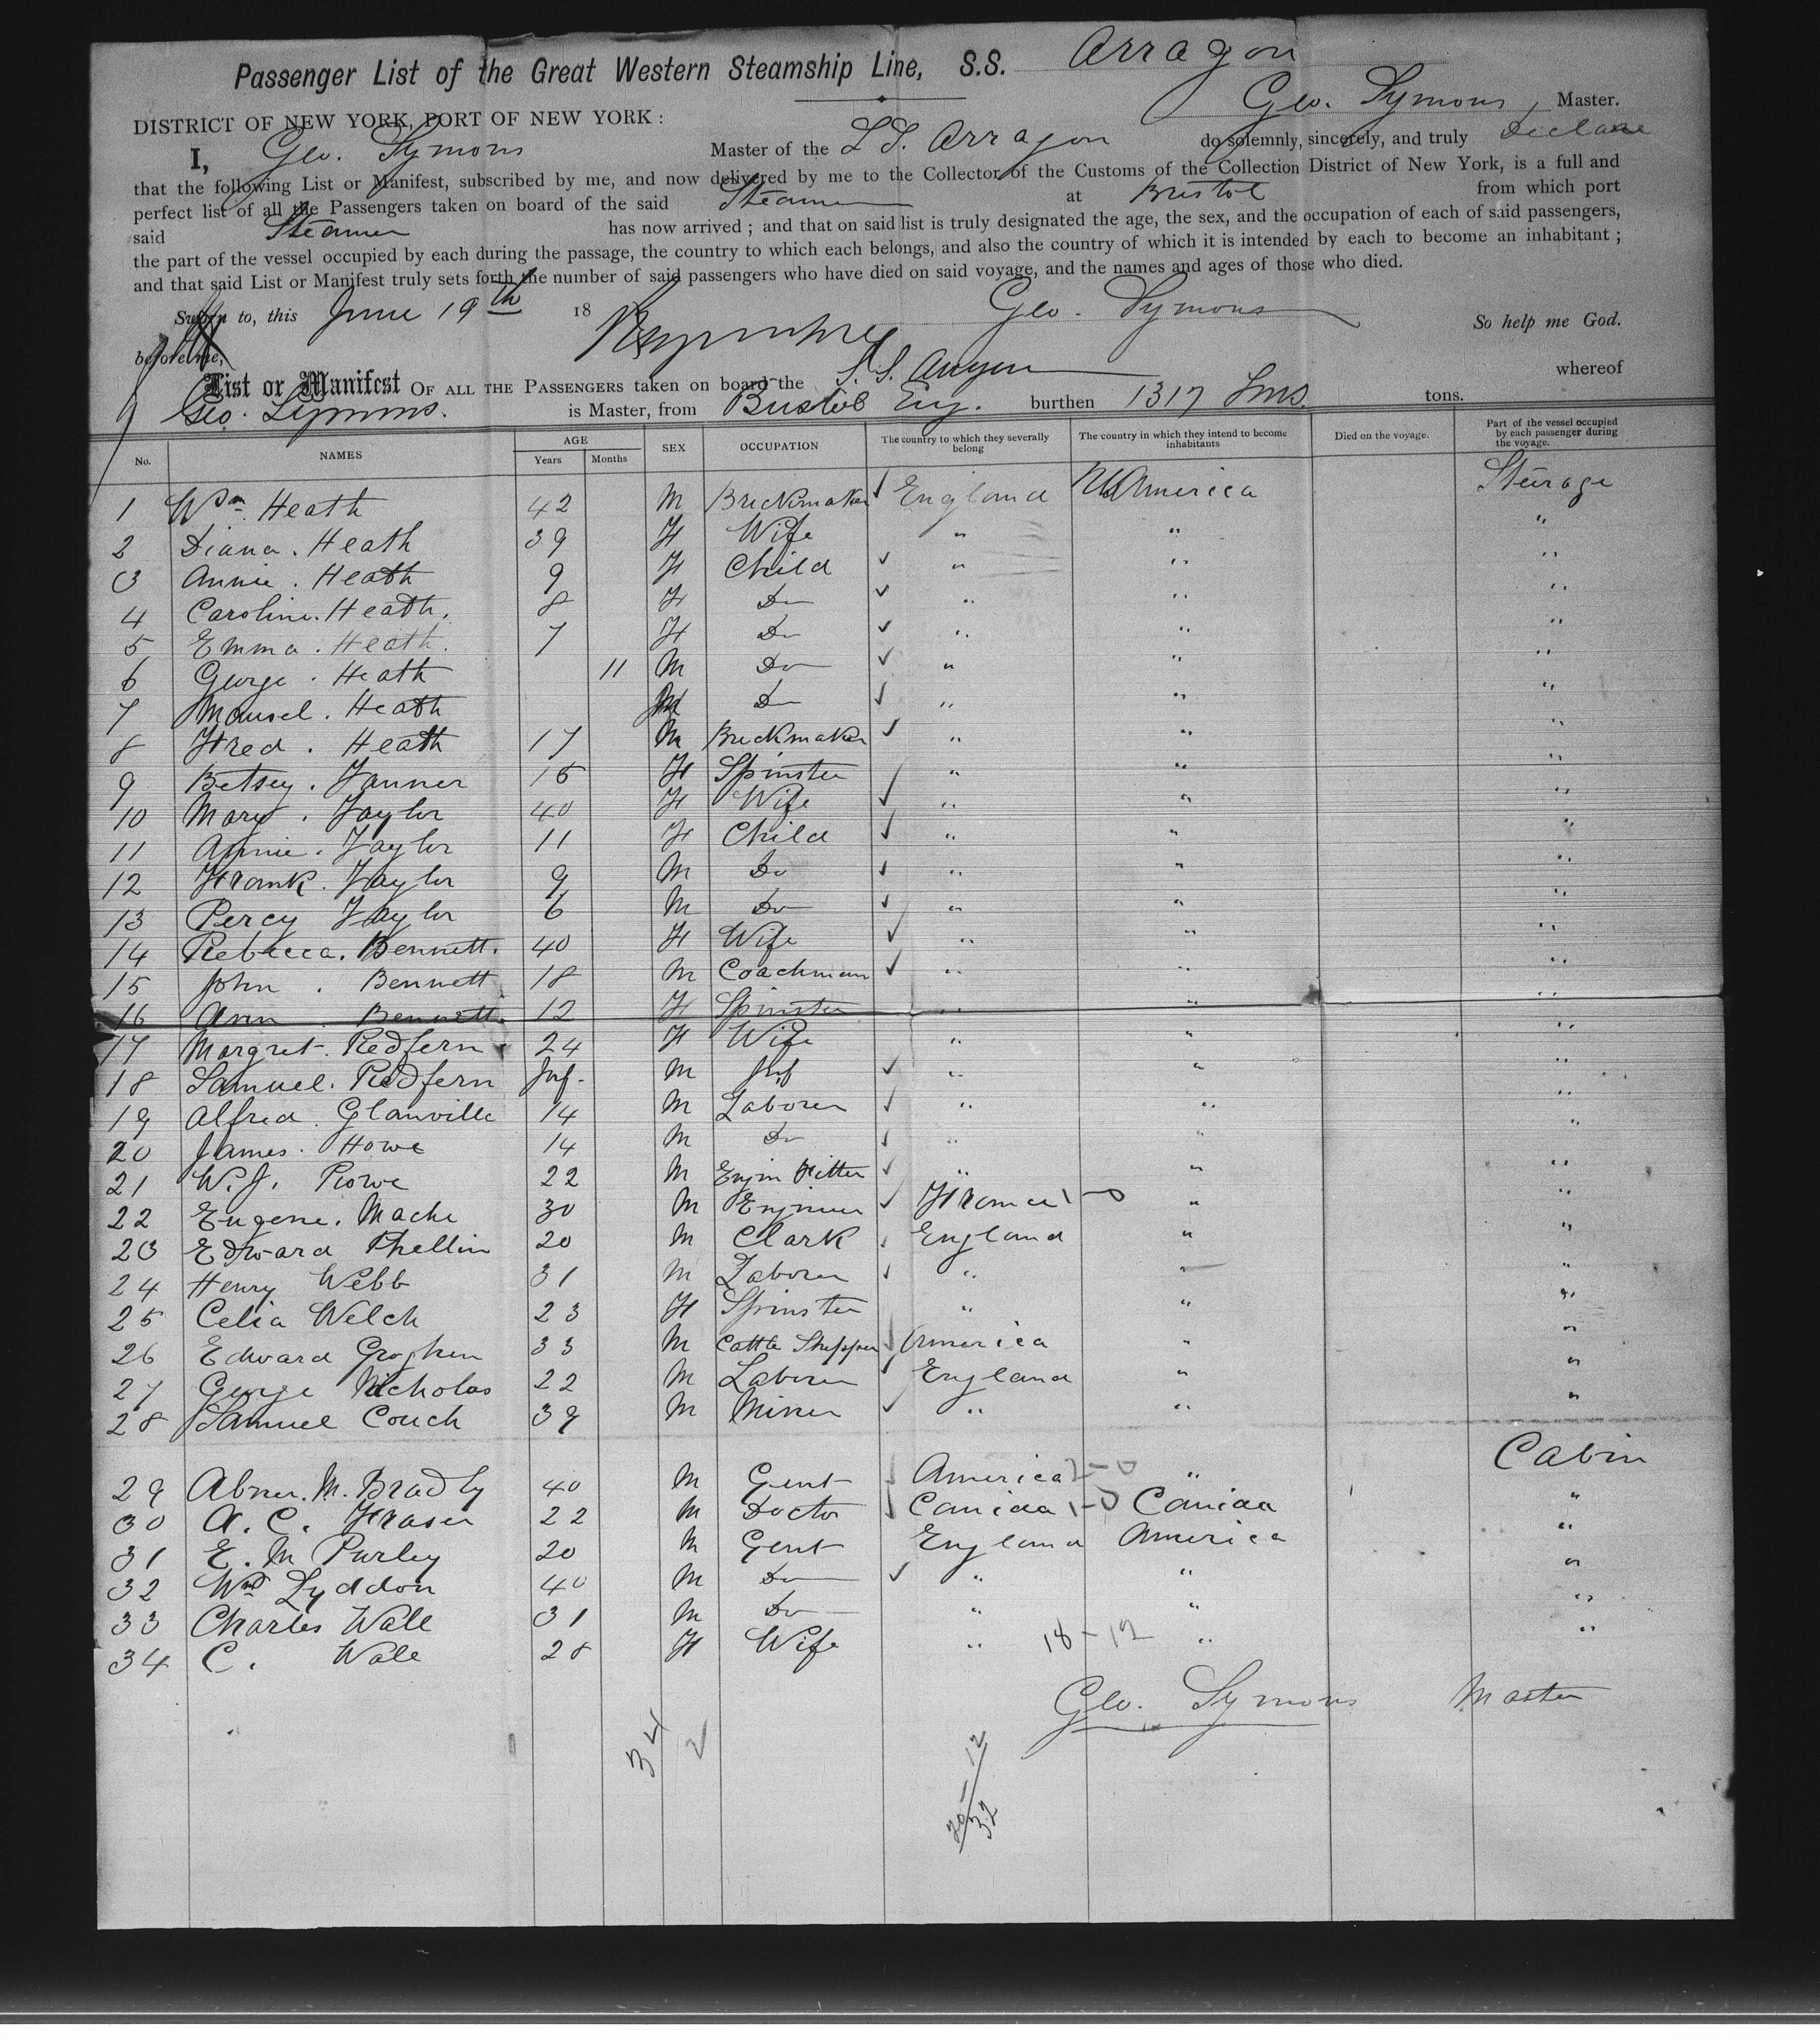 Passenger List of the Great Western Steamship Line, S.S. Arragon
Geo. Symons, Master.
DISTRICT OF NEW YORK, PORT OF NEW YORK:
I, Geo. Symons Master of the S.S. Arragon do solemnly, sincerely, and truly declare
that the following List or Manifest, subscribed by me, and now delivered by me to the Collector of the Customs of the Collection District of New York, is a full and
perfect list of all the Passengers taken on board of the said Steamer at Bristol from which port
said Steamer has now arrived; and that on said list is truly designated the age, the sex, and the occupation of each of said passengers,
the part of the vessel occupied by each during the passage, the country to which each belongs, and also the country of which it is intended by each to become an inhabitant;
and that said List or Manifest truly sets forth the number of said passengers who have died on said voyage, and the names and ages of those who died.
Sworn to, this June 19th 18 Geo. Symons So help me God.
before me,
List or Manifest OF ALL THE PASSENGERS taken on board the S.S. Arragon whereof
Geo. Symons. is Master, from Bristol Eng. burthen 1317 Tns. tons.
No. NAMES AGE Years Months SEX OCCUPATION The country to which they severally belong The country in which they intend to become inhabitants Died on the voyage. Part of the vessel occupied by each passenger during the voyage.
1 Wm Heath 42 M Brickmaker England America Steirage
2 Diana. Heath 39 F Wife " " "
3 Annie. Heath 9 F Child " " "
4 Caroline. Heath. 8 F Do " " "
5 Emma. Heath. 7 F Do " " "
6 George. Heath 11 M Do " " "
7 Mansel. Heath Do " " "
8 Fred. Heath 17 M Brickmaker " " "
9 Betsey. Tanner 16 F Spinster " " "
10 Mary. Taylor 40 F Wife " " "
11 Annie. Taylor 11 F Child " " "
12 Frank. Taylor 9 M Do " " "
13 Percy Taylor 6 M Do " " "
14 Rebecca. Bennett. 40 F Wife " " "
15 John. Bennett 18 M Coachman " " "
16 Ann. Bennett. 12 F Spinster " " "
17 Margret. Redfern 24 F Wife " " "
18 Samuel. Redfern Inf. M Inf " " "
19 Alfred. Glanville 14 M Laborer " " "
20 James. Howe 14 M Do " " "
21 W.J. Rowe 22 M Engin Fitter " " "
22 Eugene. Mache 30 M Enjineer France 1-0 " "
23 Edward Phellin 20 M Clark England " "
24 Henry Webb 31 M Laborer " " "
25 Celia Welch 23 F Spinster " " "
26 Edward Groghen 33 M Cattle Shipper America " "
27 George Nicholas 22 M Laborer England " "
28 Samuel Couch 39 M Miner " " "
29 Abner. M. Bradly 40 M Gent America 2-0 " Cabin
30 A. C. Fraser 22 M Doctor Canida 1-0 Canida "
31 E. M Purley 20 M Gent England America "
32 Wm Lyddon 40 M Do " " "
33 Charles Wale 31 M Do " " "
34 C. Wale 28 F Wife " 18-12 " "
Geo. Symons Master
34
2
20-12
32